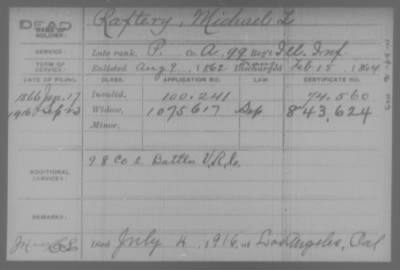 DEAD Raftery, Michael L
NAME OF SOLDIER:
SERVICE: Late rank, P Co A, 99 Reg't Ill. Inf
TERM OF SERVICE: Enlisted Aug 9, 1862 Discharged Feb. 15, 1864
DATE OF FILING. CLASS. APPLICATION NO. LAW. CERTIFICATE NO.
1866 17 Invalid, 100.241 74.560
1916 Widow, 1075617 843,624
Minor,
ADDITIONAL SERVICES: 98 Co 2 Battln V.R.C.
REMARKS:
Died July 4, 1916, at Los Angeles, Cal